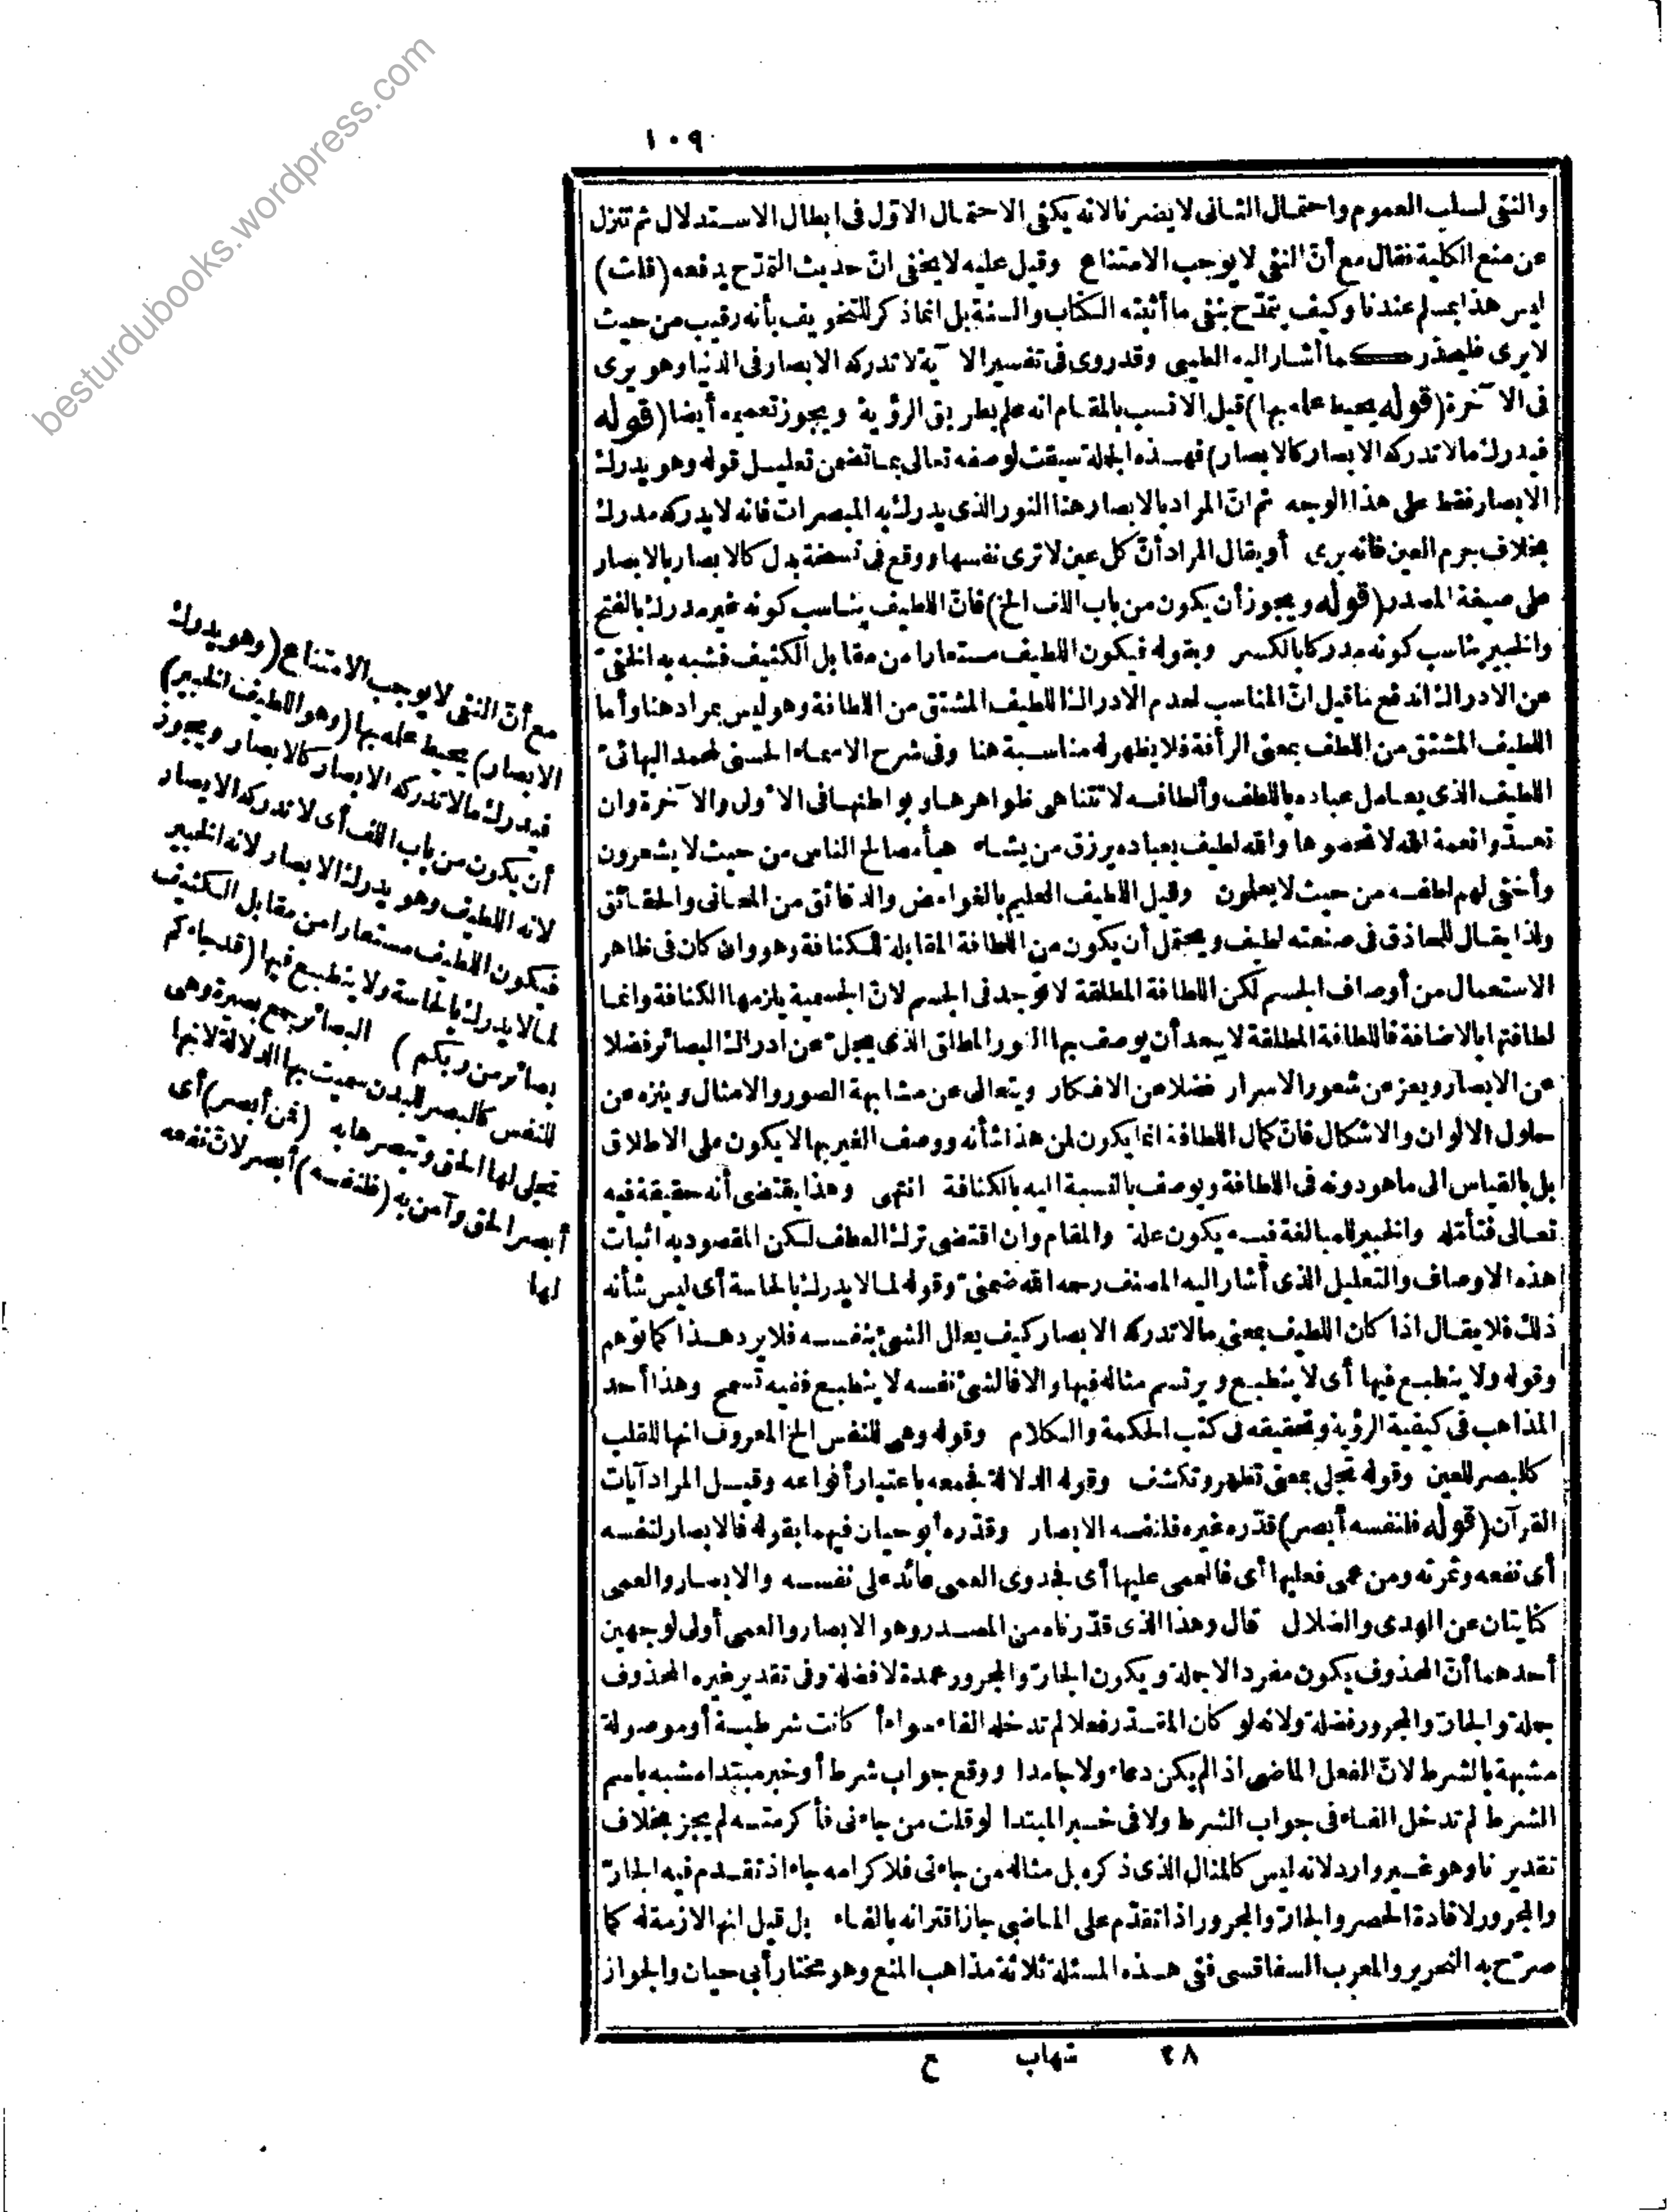 ١٠٩
والنفى لسلب العموم واحتمال الثانى لا يضرنا لانه يكفى الاحتمال الاوّل فى ابطال الاستدلال ثم تنزل
عن منع الكلية فقال مع أنّ النفى لا يوجب الامتناع وقيل عليه لا يخفى انّ حديث التمدّح يدفعه (قلت)
ليس هذا بمسلم عندنا وكيف يتمدّح بنفى ما أثبته الكتاب والسنة بل انما ذكر للتخويف بأنه رقيب من حيث
لا يرى فليحذر كما أشار اليه الطيبى وقد روى فى تفسير الآية لا تدركه الابصار فى الدنيا وهو يرى
فى الآخرة (قوله يحيط علمه بها) قيل الانسب بالمقام انه علم بطريق الرؤية ويجوز تعميمه أيضا (قوله
فيدرك مالا تدركه الابصار كالابصار) فهذه الجملة سيقت لوصفه تعالى بما تضمن تعليل قوله وهو يدرك
الابصار فقط على هذا الوجه ثم انّ المراد بالابصار هنا النور الذى يدرك به المبصرات فانه لا يدركه مدرك
بخلاف جرم العين فانه يرى أو يقال المراد أنّ كل عين لا ترى نفسها ووقع فى نسخة بدل كالابصار بالابصار
على صيغة المصدر (قوله ويجوز أن يكون من باب اللف الخ) فانّ اللطيف يناسب كونه غير مدرك بالفتح
والخبير يناسب كونه مدركا بالكسر وبقوله فيكون اللطيف مستعارا من مقابل الكثيف فشبه به الخفىّ
عن الادراك اندفع ما قيل انّ المناسب لعدم الادراك اللطيف المشتق من اللطافة وهو ليس بمراد هنا وأما
اللطيف المشتق من اللطف بمعنى الرأفة فلا يظهر له مناسبة هنا وفى شرح الاسماء الحسنى لمحمد البهائىّ
اللطيف الذى يعامل عباده باللطف وألطافه لا تتناهى ظواهرها وبواطنها فى الاولى والآخرة وان
تعدّوا نعمة الله لا تحصوها والله لطيف بعباده يرزق من يشاء هيأ مصالح الناس من حيث لا يشعرون
وأخفى لهم لطفه من حيث لا يعلمون وقيل اللطيف العليم بالغوامض والدقائق من المعانى والحقائق
ولذا يقال للحاذق فى صنعته لطيف ويحتمل أن يكون من اللطافة المقابلة للكثافة وهو وان كان فى ظاهر
الاستعمال من أوصاف الجسم لكن اللطافة المطلقة لا توجد فى الجسم لانّ الجسمية يلزمها الكثافة وانما
لطافتها بالاضافة فاللطافة المطلقة لا يبعد أن يوصف بها النور المطلق الذى يجلّ عن ادراك البصائر فضلا
عن الابصار ويعز عن شعور الاسرار فضلا عن الافكار ويتعالى عن مشابهة الصور والامثال وينزه عن
حلول الالوان والاشكال فانّ كمال اللطافة انما يكون لمن هذا شأنه ووصف الغير بها لا يكون على الاطلاق
بل بالقياس الى ما هو دونه فى اللطافة ويوصف بالنسبة اليه بالكثافة انتهى وهذا يقتضى أنه حقيقة فيه
تعالى فتأمّله والخبير للمبالغة فيه يكون علة والمقام وان اقتضى ترك العطف لكن المقصود به اثبات
هذه الاوصاف والتعليل الذى أشار اليه المصنف رحمه الله ضمنىّ وقوله لما لا يدرك بالحاسة أى ليس شأنه
ذلك فلا يقال اذا كان اللطيف بمعنى مالا تدركه الابصار كيف يعلل الشئ بنفسه فلا يرد هذا كما توهم
وقوله ولا ينطبع فيها أى لا ينطبع ويرتسم مثاله فيها والا فالشئ نفسه لا ينطبع ففيه تسمح وهذا أحد
المذاهب فى كيفية الرؤية وتحقيقه فى كتب الحكمة والكلام وقوله وهى للنفس الخ المعروف انها للقلب
كالبصر للعين وقوله تجلى بمعنى تظهر وتكشف وقوله الدلالة فجمعه باعتبار أنواعه وقيل المراد آيات
القرآن (قوله فلنفسه أبصر) قدّره غيره فلنفسه الابصار وقدّره أبو حيان فيهما بقوله فالابصار لنفسه
أى نفعه وثمرته ومن عمى فعليها أى فالعمى عليها أى فجدوى العمى عائد على نفسه والابصار والعمى
كنايتان عن الهدى والضلال قال وهذا الذى قدّرناه من المصدر وهو الابصار والعمى أولى لوجهين
أحدهما أنّ المحذوف يكون مفردا لا جملة ويكون الجارّ والمجرور عمدة لا فضلة وفى تقدير غيره المحذوف
جملة والجارّ والمجرور فضلة ولانه لو كان المقدّر فعلا لم تدخله الفاء سواء كانت شرطية أو موصولة
مشبهة بالشرط لانّ الفعل الماضى اذا لم يكن دعاء ولا جامدا ووقع جواب شرط أو خبر مبتدا مشبه باسم
الشرط لم تدخل الفاء فى جواب الشرط ولا فى خبر المبتدا لو قلت من جاءنى فأكرمته لم يجز بخلاف
تقديرنا وهو غير وارد لانه ليس كالمثال الذى ذكره بل مثاله من جاءنى فلاكرامه جاء اذ تقدم فيه الجارّ
والمجرور لافادة الحصر والجارّ والمجرور اذا تقدّم على الماضى جاز اقترانه بالفاء بل قيل انها لازمة له كما
صرّح به النحرير والمعرب السفاقسى ففى هذه المسئلة ثلاثة مذاهب المنع وهو مختار أبى حيان والجواز
مع أنّ النفى لا يوجب الامتناع (وهو يدرك
الابصار) يحيط علمه بها (وهو اللطيف الخبير)
فيدرك مالا تدركه الابصار كالابصار ويجوز
أن يكون من باب اللف أى لا تدركه الابصار
لانه اللطيف وهو يدرك الابصار لانه الخبير
فيكون اللطيف مستعارا من مقابل الكثيف
لما لا يدرك بالحاسة ولا ينطبع فيها (قد جاءكم
بصائر من ربكم) البصائر جمع بصيرة وهى
للنفس كالبصر للبدن سميت بها الدلالة لانها
تجلى لها الحق وتبصرها به (فمن أبصر) أى
أبصر الحق وآمن به (فلنفسه) أبصر لانّ نفعه
لها
٢٨ شهاب ع
besturdubooks.wordpress.com